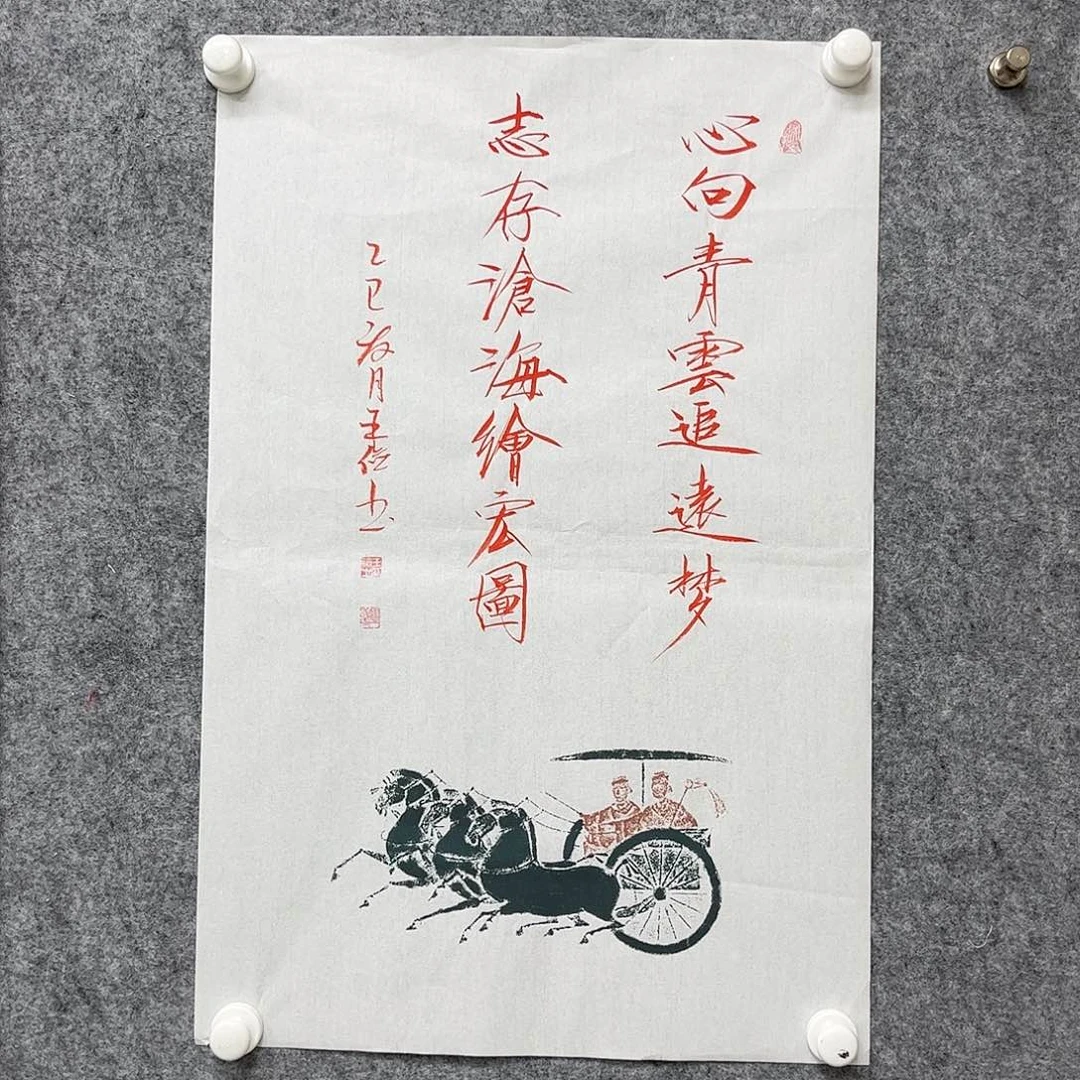 心向青雲追遠梦
志存滄海繪宏圖
乙巳 月王 书